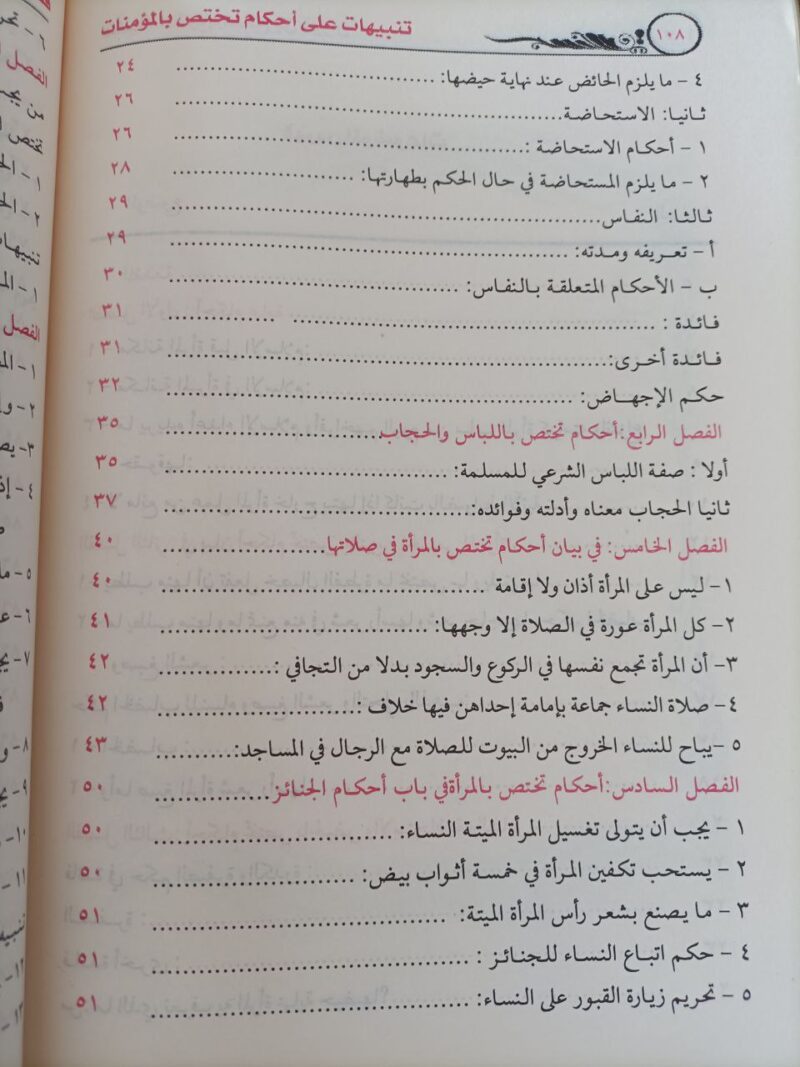 ١٠٨
تنبيهات على أحكام تختص بالمؤمنات
٤ - ما يلزم الحائض عند نهاية حيضها: ................................ ٢٤
ثانيا: الاستحاضة................................................ ٢٦
١ - أحكام الاستحاضة :............................................ ٢٦
٢ - ما يلزم المستحاضة في حال الحكم بطهارتها: ...................... ٢٨
ثالثا: النفاس.................................................... ٢٩
أ - تعريفه ومدته: ............................................... ٢٩
ب - الأحكام المتعلقة بالنفاس: ................................... ٣٠
فائدة : ........................................................ ٣١
فائدة أخرى:.................................................... ٣١
حكم الإجهاض: .................................................. ٣٢
الفصل الرابع:أحكام تختص باللباس والحجاب........................... ٣٥
أولا : صفة اللباس الشرعي للمسلمة: ................................ ٣٥
ثانيا الحجاب معناه وأدلته وفوائده:................................ ٣٧
الفصل الخامس: في بيان أحكام تختص بالمرأة في صلاتها................ ٤٠
١- ليس على المرأة أذان ولا إقامة ................................. ٤٠
٢- كل المرأة عورة في الصلاة إلا وجهها: ........................... ٤١
٣- أن المرأة تجمع نفسها في الركوع والسجود بدلا من التجافي :.............. ٤٢
٤- صلاة النساء جماعة بإمامة إحداهن فيها خلاف :.................... ٤٢
٥ -يباح للنساء الخروج من البيوت للصلاة مع الرجال في المساجد:............ ٤٣
الفصل السادس:أحكام تختص بالمرأةفي باب أحكام الجنائز................ ٥٠
١ - يجب أن يتولى تغسيل المرأة الميتة النساء: ........................ ٥٠
٢ - يستحب تكفين المرأة في خمسة أثواب بيض: ....................... ٥٠
٣ - ما يصنع بشعر رأس المرأة الميتة: ............................... ٥١
٤ - حكم اتباع النساء للجنائز : ................................... ٥١
٥ - تحريم زيارة القبور على النساء: ................................ ٥١